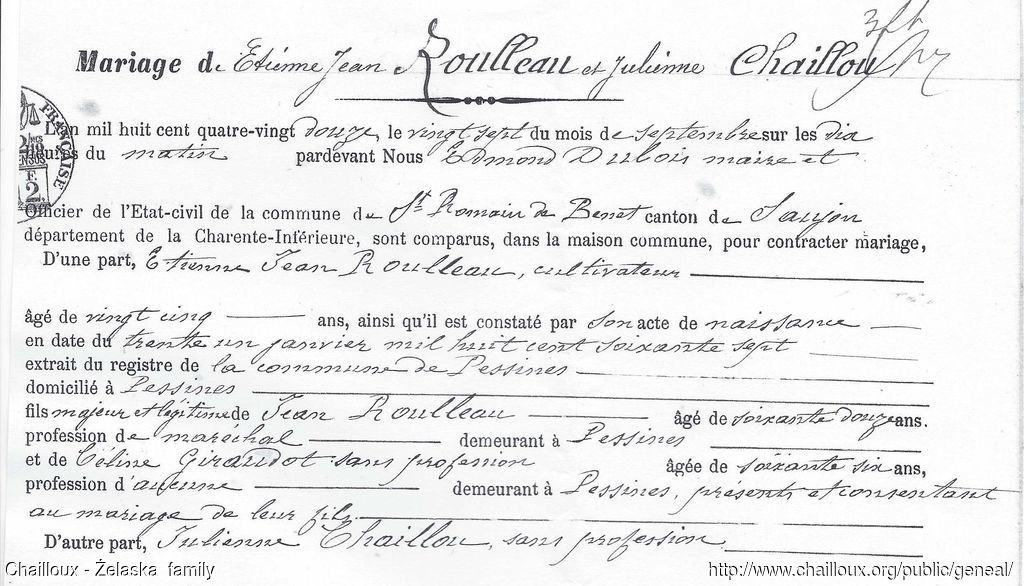 Mariage de Etienne Jean Roulleau et Julienne Chaillou
L'an mil huit cent quatre-vingt douze, le vingt sept du mois de septembre sur les dix
heures du matin pardevant Nous Edmond Dubois maire et
Officier de l'Etat-civil de la commune de St Romain de Benet canton de Saujon
département de la Charente-Inférieure, sont comparus, dans la maison commune, pour contracter mariage,
D'une part, Etienne Jean Roulleau, cultivateur
âgé de vingt cinq ans, ainsi qu'il est constaté par son acte de naissance
en date du trente un janvier mil huit cent soixante sept
extrait du registre de la commune de Pessines
domicilié à Pessines
fils majeur et légitime de Jean Roulleau âgé de soixante douze ans.
profession de maréchal demeurant à Pessines
et de Céline Giraudot sans profession âgée de soixante six ans,
profession d'aucune demeurant à Pessines, présents et consentant
au mariage de leur fils
D'autre part, Julienne Chaillou, sans profession
FRANÇAISE
2.
Chailloux - Żelaska family http://www.chailloux.org/public/geneal/